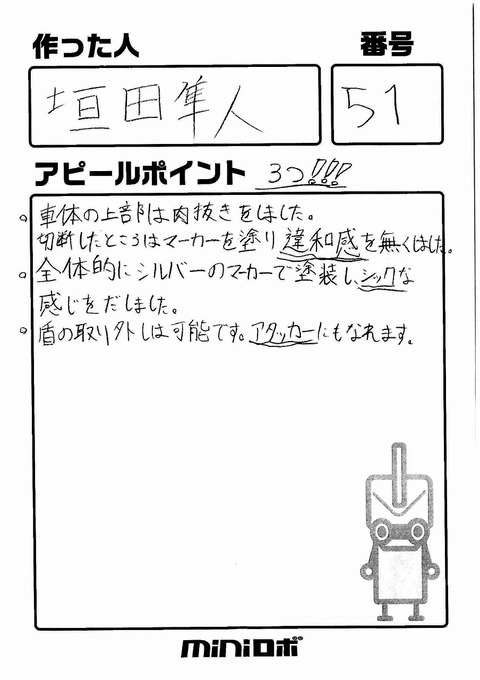 作った人
番号
垣田隼人
51
アピールポイント 3つ!!!
。車体の上部は肉抜きをしました。
切断したところはマーカーを塗り違和感を無くしました。
。全体的にシルバーのマーカーで塗装し、シックな
感じをだしました。
。盾の取り外しは可能です。アタッカーにもなれます。
miniロボ